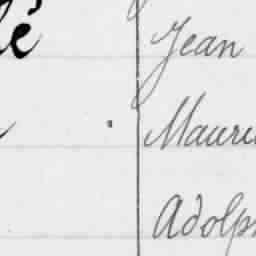 Jean
Mauri
Adolph